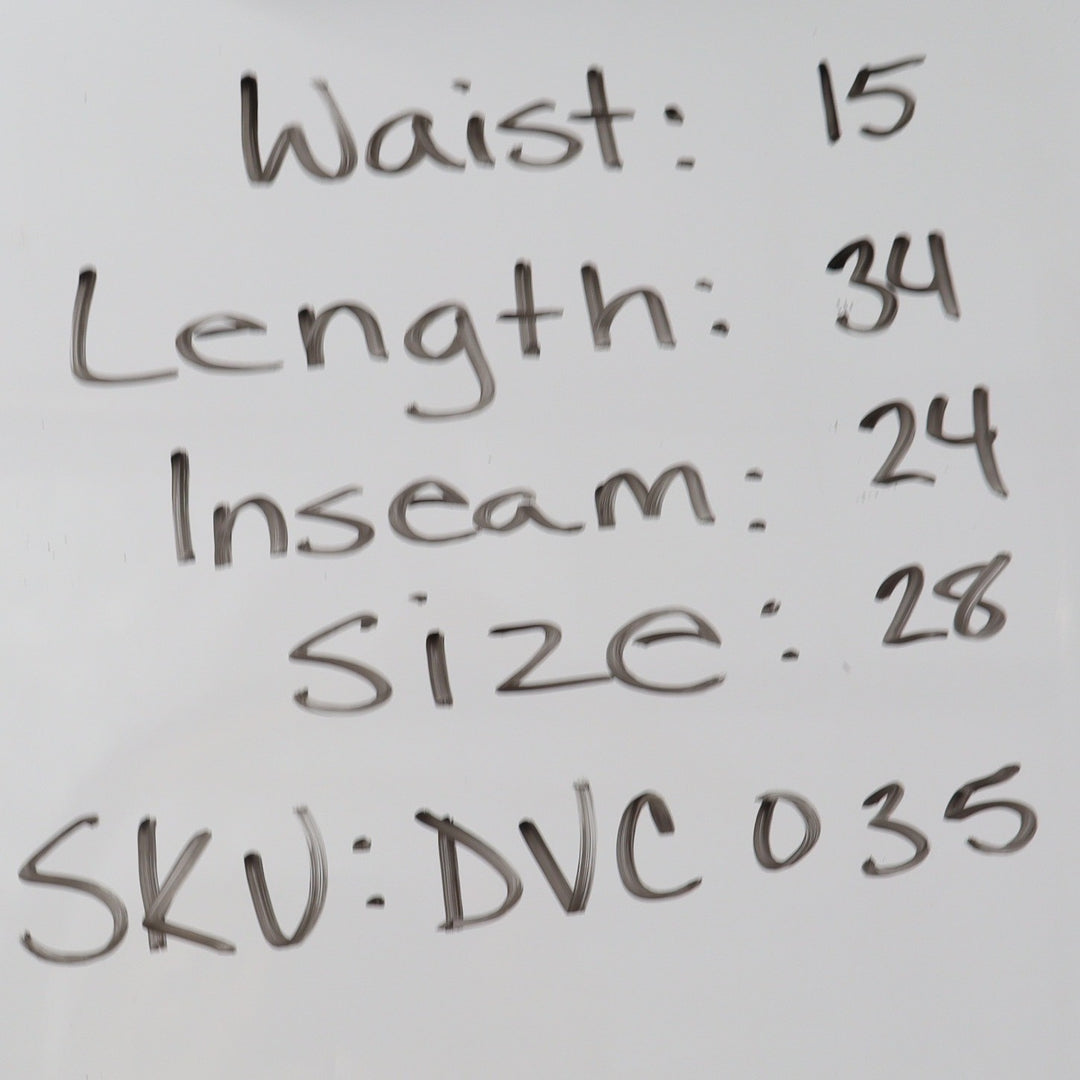 Waist: 15
Length: 34
Inseam: 24
Size: 28
SKU: DVC 035